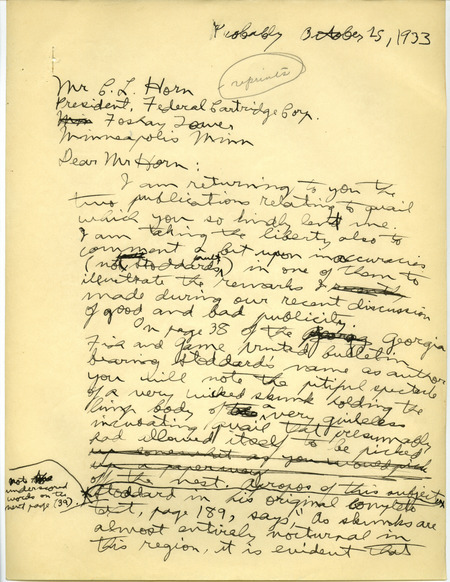 Probably October 25, 1933
reprints
Mr C. L. Horn
President, Federal Cartridge Corp.
Foshay Tower
Minneapolis Minn
Dear Mr Horn:
I am returning to you the
two publications relating to quail
which you so kindly lent me.
I am taking the liberty also to
comment a bit upon inaccuracies
(not Stoddard's fault) in one of them to
illustrate the remarks I
made during our recent discussion
of good and bad publicity.
On page 38 of the Georgia
Fish and Game printed bulletin
bearing Stoddard's name as author
you will note the pitiful spectacle
of a very wicked skunk holding the
limp body of a very guileless
incubating quail that presumably
had allowed itself to be picked
up somewhat as you would pick
up a paperwad
off the nest. Apropos of this subject
Stoddard in his original complete
text, page 189, says "As skunks are
almost entirely nocturnal in
this region, it is evident that
note
underscored
words on the
next page (39)